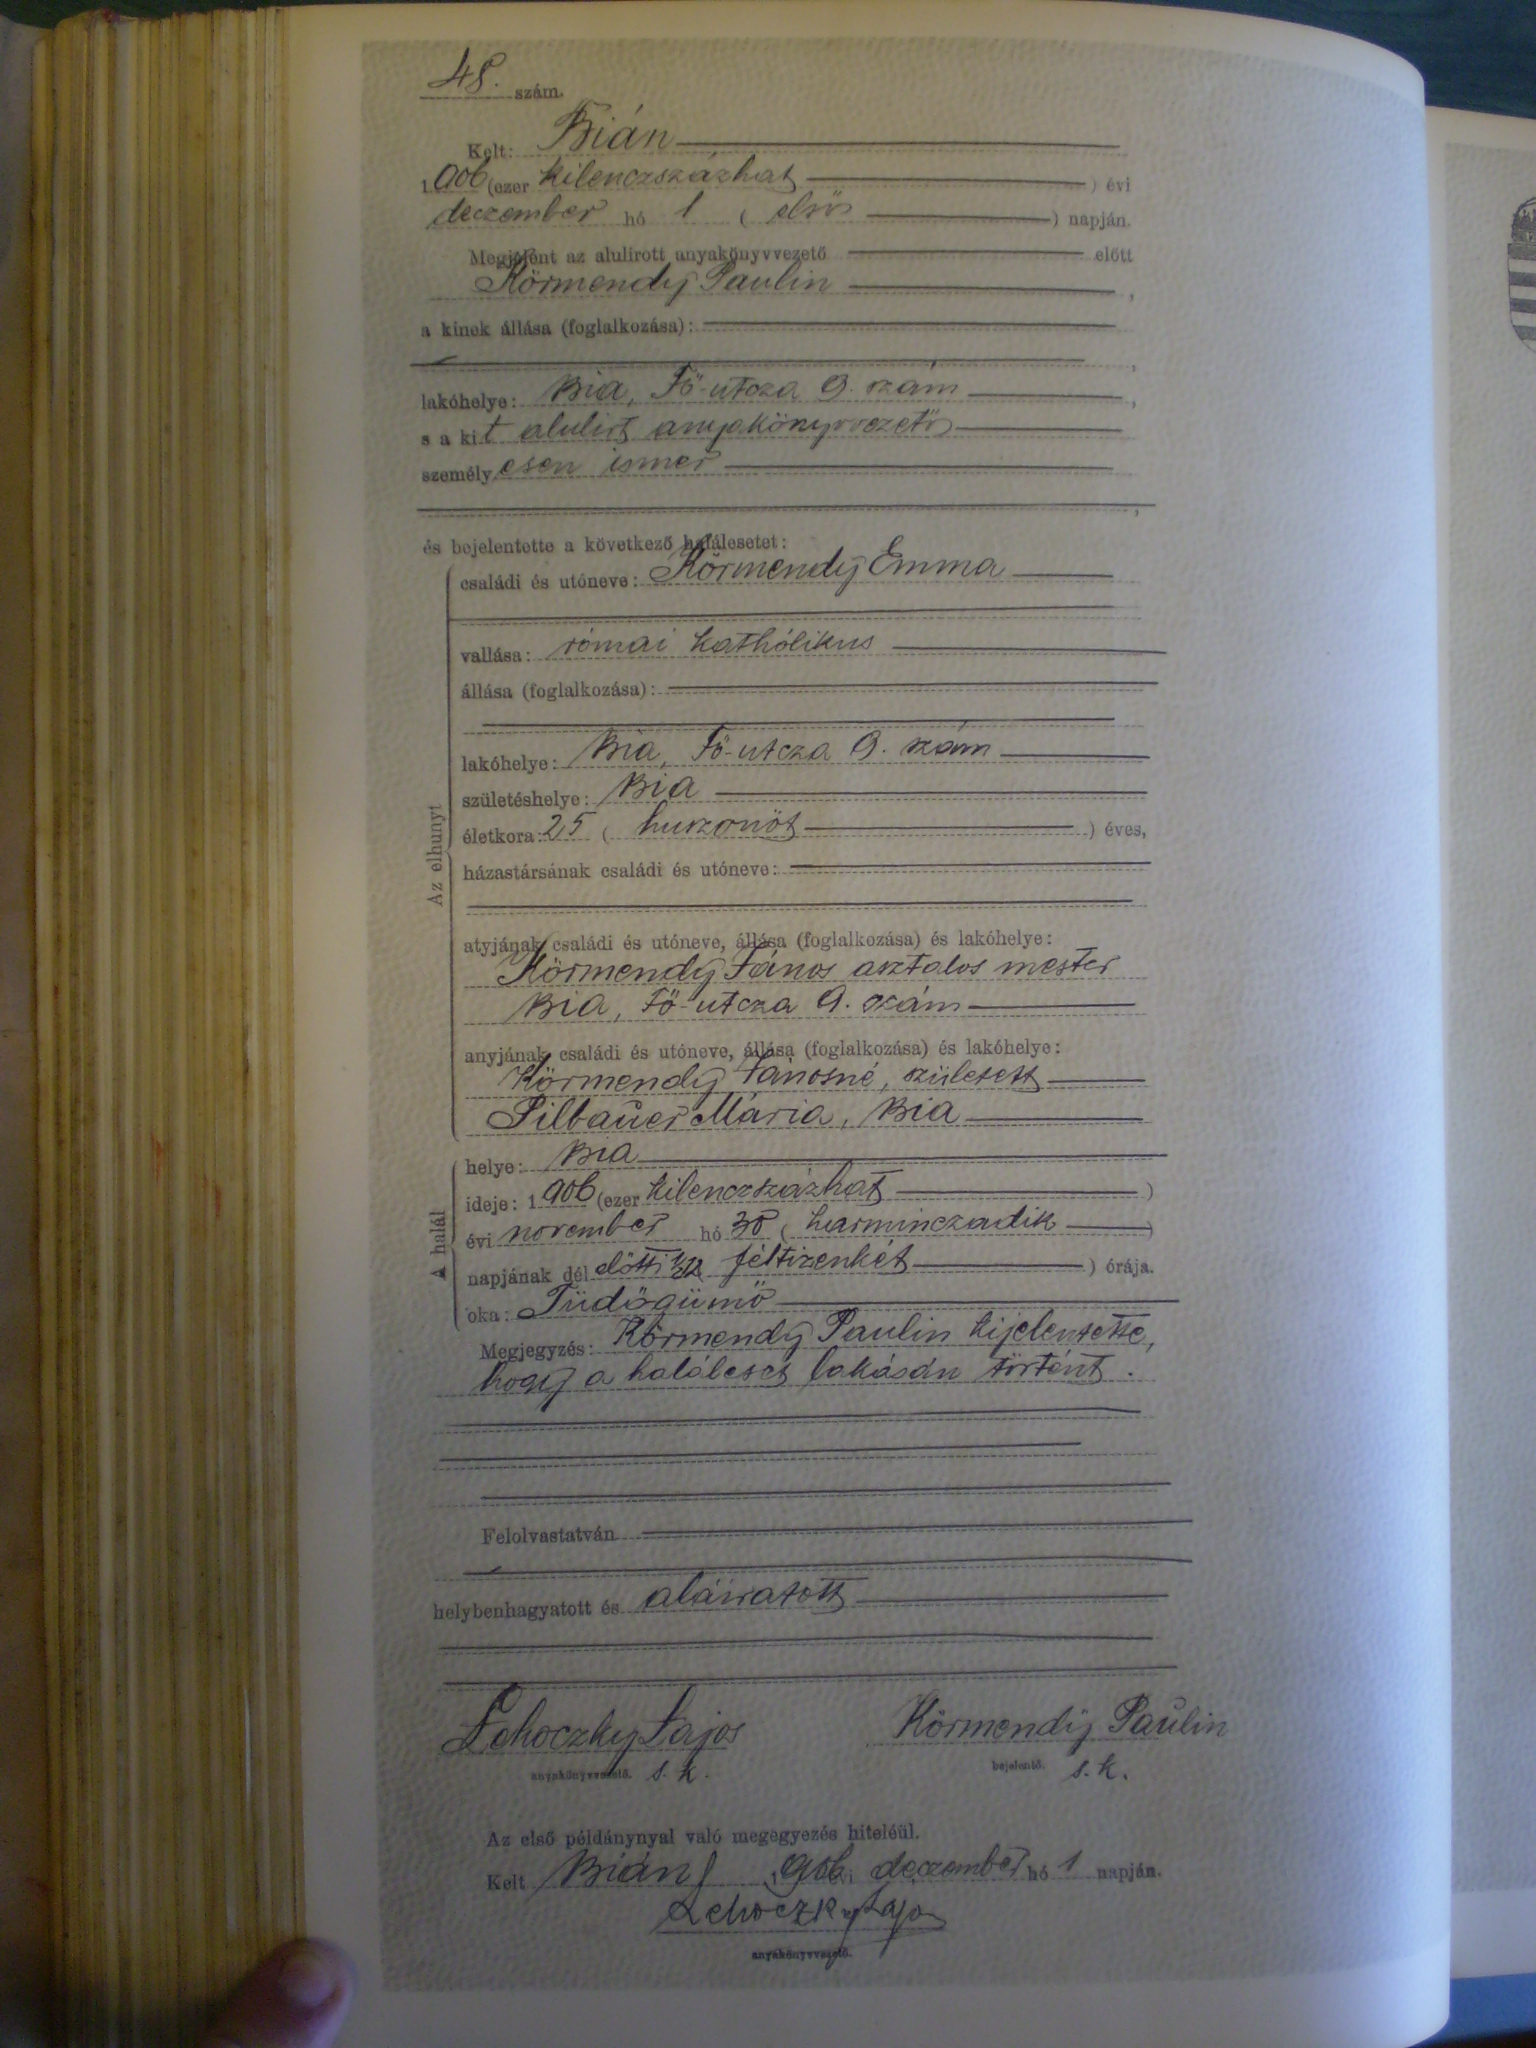 48. szám.
Kelt: Bián
1906 (ezer kilenczszázhat ) évi
deczember hó 1 ( első ) napján.
Megjelent az alulirott anyakönyvvezető előtt
Körmendy Paulin ,
a kinek állása (foglalkozása):
,
lakóhelye: Bia, Fő-utcza 9. szám ,
s a kit alulirt anyakönyvvezető
személyesen ismer
,
és bejelentette a következő halálesetet:
családi és utóneve: Körmendy Emma
vallása: római kathólikus
állása (foglalkozása):
lakóhelye: Bia, Fő-utcza 9. szám
születéshelye: Bia
életkora: 25 ( huszonöt ) éves,
házastársának családi és utóneve:
Az elhunyt
atyjának családi és utóneve, állása (foglalkozása) és lakóhelye:
Körmendy János asztalos mester
Bia, Fő-utcza 9. szám
anyjának családi és utóneve, állása (foglalkozása) és lakóhelye:
Körmendy Jánosné, született
Pilbauer Mária, Bia
helye: Bia
ideje: 1906 (ezer kilenczszázhat )
évi november hó 30 ( harminczadik )
A halál
napjának dél előtti ½12 féltizenkét ) órája.
oka: Tüdőgümő
Megjegyzés: Körmendy Paulin kijelentette,
hogy a haláleset lakásán történt.
Felolvastatván
helybenhagyatott és aláiratott
Lehoczky Lajos Körmendy Paulin
anyakönyvvezető. s. k. bejelentő. s. k.
Az első példánynyal való megegyezés hiteléül.
Kelt Bián, 1906 évi deczember hó 1 napján.
Lehoczky Lajos
anyakönyvvezető.